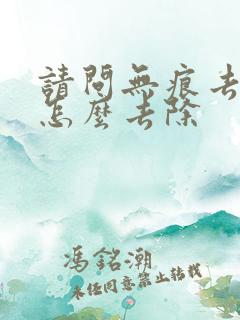 請問無痕去
怎麼去除
馮銘潮
未经同意禁止转载